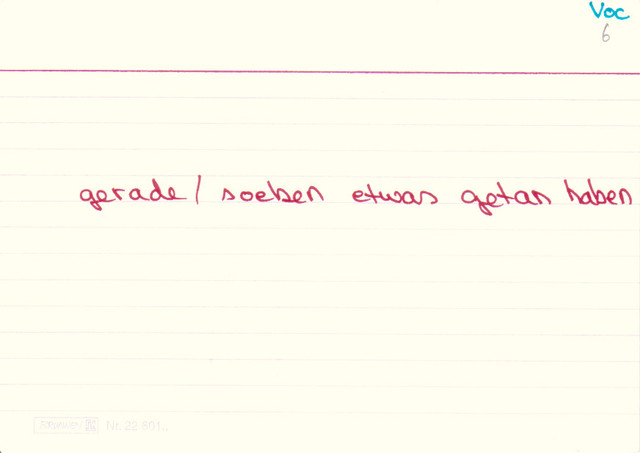 Voc
6
gerade / soeben etwas getan haben
Nr. 22 801